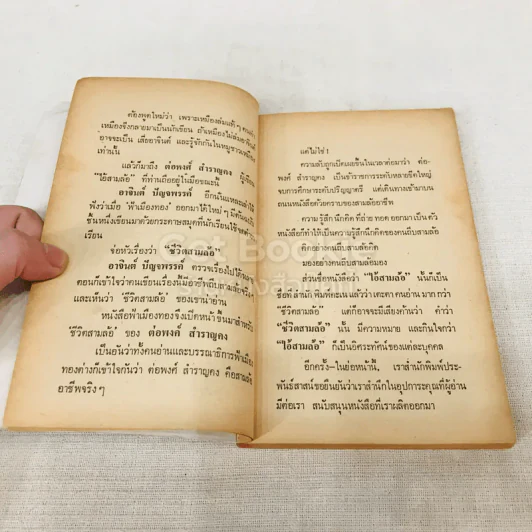 ต้องพูดใหม่ว่า เพราะเหมืองล่มแท้ๆ คนทำ
เหมืองจึงกลายมาเป็นนักเขียน ถ้าเหมืองไม่ล่ม อาจินต์
อาจจะเป็น เสี่ยอาจินต์ และรู้จักกันในหมู่ชาวเหมือง
เท่านั้น
แล้วก็มาถึง ต่อพงศ์ สำราญคง ผู้เขียน
"ไอ้สามล้อ" ที่ท่านถืออยู่ในมือขณะนี้
อาจินต์ ปัญจพรรค์ อีกนั่นแหละ
ฟังว่าเมื่อ "ฟ้าเมืองทอง" ออกมาได้ใหม่ๆ มีต้นฉบับ
ชิ้นหนึ่งเขียนมาด้วยกระดาษสมุดที่นักเรียนใช้
เรียน
ช่อหัวเรื่องว่า "ชีวิตสามล้อ"
อาจินต์ ปัญจพรรค์ ตรวจเรื่องไป
ตอนก็เข้าใจว่าคนเขียนเรื่องนี้มีอาชีพถีบสามล้อ
และเห็นว่า ชีวิตสามล้อ ของเขาน่าอ่าน
หนังสือฟ้าเมืองทองจึงเปิดหน้าขึ้นมาสำหรับ
ชีวิตสามล้อ ของ ต่อพงศ์ สำราญคง
เป็นอันว่าทั้งคนอ่านและบรรณาธิการฟ้าเมือง
ทองต่างก็เข้าใจกันว่า ต่อพงศ์ สำราญคง คือสามล้อ
อาชีพจริงๆ
แต่ไม่ใช่!
ความลับถูกเปิดเผยขึ้นในเวลาต่อมาว่า ต่อ-
พงศ์ สำราญคง เป็นข้าราชการระดับหลายขีดใหญ่
จบการศึกษาระดับปริญญาตรี แต่เดินทางเข้ามาบน
ถนนหนังสือด้วยคราบของคนถีบสามล้ออาชีพ
ความรู้สึกนึกคิด ที่ถ่าย ทอด ออกมา เป็น ตัว
หนังสือก็ทำให้เป็นความรู้สึกนึกคิดของคนถีบสามล้อ
อย่างคนถีบสามล้อคิด
มองอย่างคนถีบสามล้อมอง
ส่วนชื่อหนังสือว่า "ไอ้สามล้อ" นั้นก็เป็น
ชื่อที่ สำนัก พิมพ์คะเน แล้วว่า เตะตา คนอ่าน มากกว่า
ชีวิตสามล้อ แต่ก็อาจจะมีเสียงค้านว่า คำว่า
"ชีวิตสามล้อ" นั้น มีความหมาย และกินใจกว่า
"ไอ้สามล้อ" ก็เป็นอิสระทัศน์ของแต่ละบุคคล
อีกครั้ง-ในย่อหน้านี้, เราสำนักพิมพ์ประ-
พันธ์สาสน์ขอยืนยันว่าเราสำนึกในอุปการะคุณที่ผู้อ่าน
มีต่อเรา สนับสนุนหนังสือที่เราผลิตออกมา